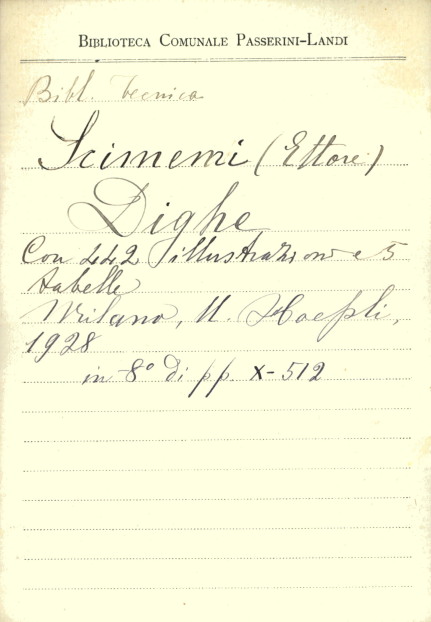 Biblioteca Comunale Passerini-Landi
Bibl. Tecnica
Scimemi (Ettore)
Dighe
Con 442 illustrazioni e 5
tabelle
Milano, U. Hoepli,
1928
in-8° di pp. X-512